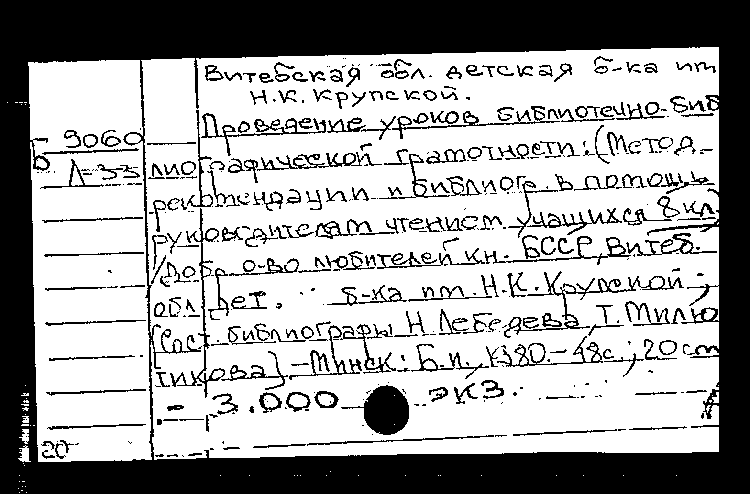 Витебская обл. детская б-ка им
Н.К. Крупской.
Проведение уроков библиотечно-биб
Б 9060
Л-33
лиографической грамотности: (Метод.
рекомендации и библиогр. в помощь
руководителям чтением учащихся 8 кл)
/Добр. о-во любителей кн. БССР, Витеб.
обл. дет. б-ка им. Н.К. Крупской;
[Сост. библиографы Н. Лебедева, Т. Милю
тикова]. - Минск: Б.и., 1980. - 48с.; 20 см
. - 3.000 экз.
20